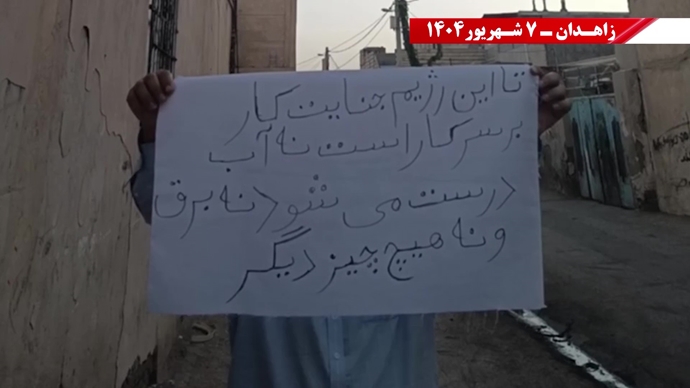 زاهدان ـ ۷ شهریور ۱۴۰۴
تا این رژیم جنایت کار
بر سر کار است نه آب
درست می شود نه برق
و نه هیچ چیز دیگر